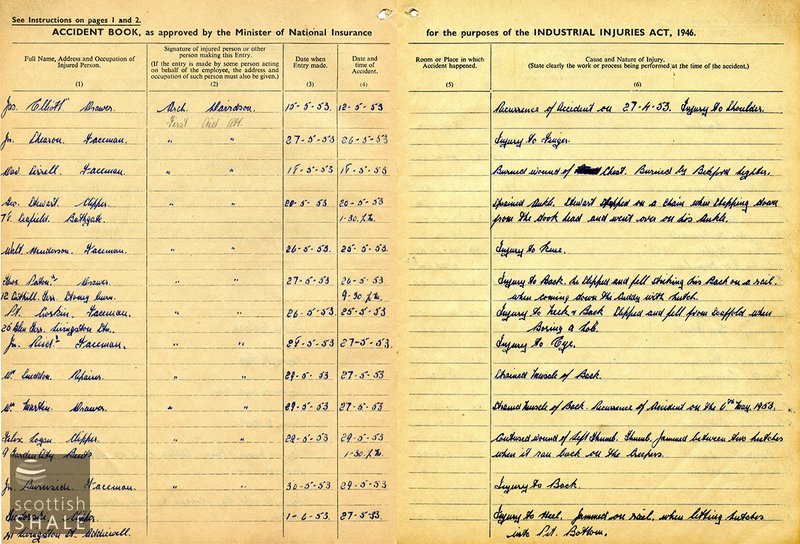 See Instructions on pages 1 and 2.
ACCIDENT BOOK, as approved by the Minister of National Insurance for the purposes of the INDUSTRIAL INJURIES ACT, 1946.
Full Name, Address and Occupation of Injured Person. (1)
Signature of injured person or other person making this Entry. (If the entry is made by some person acting on behalf of the employee, the address and occupation of such person must also be given.) (2)
Date when Entry made. (3)
Date and time of Accident. (4)
Room or Place in which Accident happened. (5)
Cause and Nature of Injury. (State clearly the work or process being performed at the time of the accident.) (6)
Jas. Elliott Drawer Arch. Davidson. 15-5-53 12-5-53 Recurrence of Accident on 27-4-53. Injury to Shoulder.
First Aid Att.
Jn. Shearon Faceman " " 27-5-53 26-5-53 Injury to Finger.
Dav. Faceman. " " 18-5-53 18-5-53 Burned wound of Chest. Burned by Bickford lighter.
Geo. Stewart Clipper. " " 20-5-53 20-5-53 Sprained Ankle. Stewart stepped on a chain when stepping down
Bathgate 1-30. P.M. from the hook head and went over on his Ankle.
Walt. Henderson. Faceman " " 26-5-53 25-5-53 Injury to Knee.
Thos. Drawer " " 27-5-53 26-5-53 Injury to Back. he slipped and fell striking his Back on a rail.
12 Cuthill Terr. Stoneyburn. 9-30 P.M. when coming down the cuddy with hutch.
Pt. Corbin. Faceman. " " 26-5-53 25-5-53 Injury to Neck & Back Slipped and fell from Scaffold when
Terr. Livingston Stn. Boring a hole.
Jn. Faceman. " " 28-5-53 27-5-53 Injury to Eye.
Wm. Repairer " " 29-5-53 27-5-53 Strained Muscle of Back.
Wm. Martin. Drawer " " 29-5-53 27-5-53 Strained Muscle of Back. Recurrence of Accident on the 6th May. 1953.
Felix Logan Clipper " " 29-5-53 29-5-53 Contused wound of Left Thumb. Thumb Jammed between two hutches
9 Garden City Bents 1-30. P.M. when it ran back on the Creepers.
Jn. Burnside Faceman " " 30-5-53 29-5-53 Injury to Back.
" " 1-6-53 27-5-53 Injury to Heel. Jammed on rail. when letting hutches
Livingston St. into Pit Bottom.
scottish
SHALE